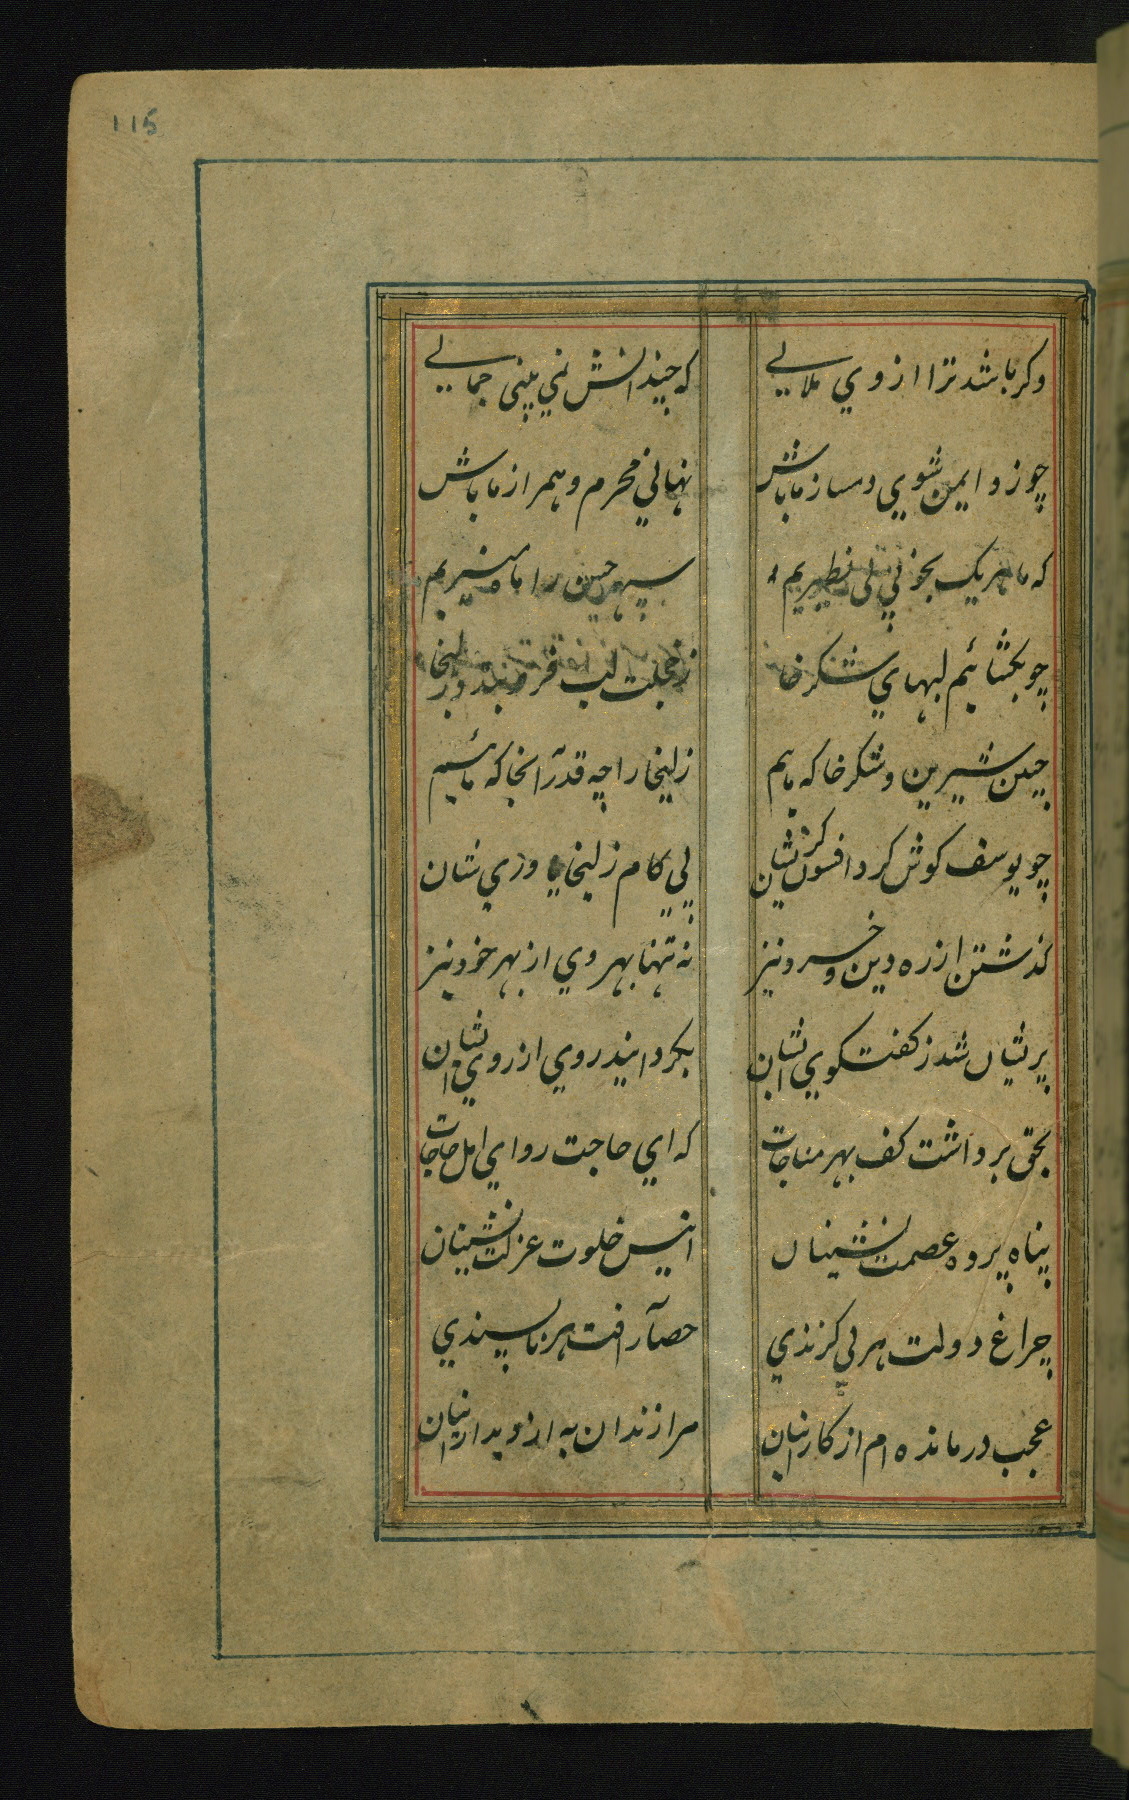 115
وكر باشد ترا از وي ملالي كه چندانش نمي بيني جمالي
چو زو ايمن شوي دمساز ما باش نهاني محرم و همراز ما باش
كه ما هريك بخوبي بي نظيريم سپهر حسن را ماه منيريم
چو بكشائيم لبهاي شكرخا ز خجلت لب فرو بندد زليخا
چنين شيرين و شكرخا كه مائيم زليخا را چه قدر آنجا كه مائيم
چو يوسف كوش كرد افسون كريشان پي كام زليخا ياوري شان
كذشتند از ره دين و خرد نيز نه تنها بهر وي از بهر خود نيز
پريشان شد ز كفت وكوي ايشان بكردانيد روي از روي ايشان
بحق برداشت كف بهر مناجات كه اي حاجت رواي اهل حاجات
پناه پرده عصمت نشينان انيس خلوت عزلت نشينان
چراغ دولت هر بي كزندي حصار آفت هر ناپسندي
عجب درمانده ام از كار اينان مرا زندان به از ديدار اينان